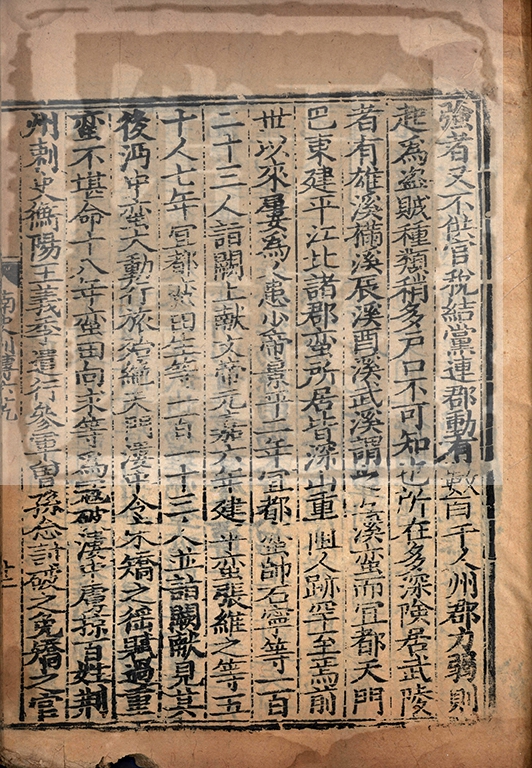 強者又不供官稅結黨連郡動有數百千人州郡力弱則
起為盜賊種類稍多戶口不可知也所在多深險居武陵
者有雄溪樠溪辰溪酉溪武溪謂之五溪蠻而宜都天門
巴東建平江北諸郡蠻所居皆深山重阻人跡罕至焉前
世以來屢為人患少帝景平二年宜都蠻帥石寧等一百
二十三人詣闕上獻文帝元嘉六年建平蠻張維之等五
十人七年宜都蠻田生等一百一十三人並詣闕獻見其
後沔中蠻大動行旅殆絕天門漊中令宋矯之徭賦過重
蠻不堪命十八年蠻田向求等為寇破漊中虜掠百姓荊
州刺史衡陽王義季遣行參軍曾孫念討破之免矯之官
南史列傳